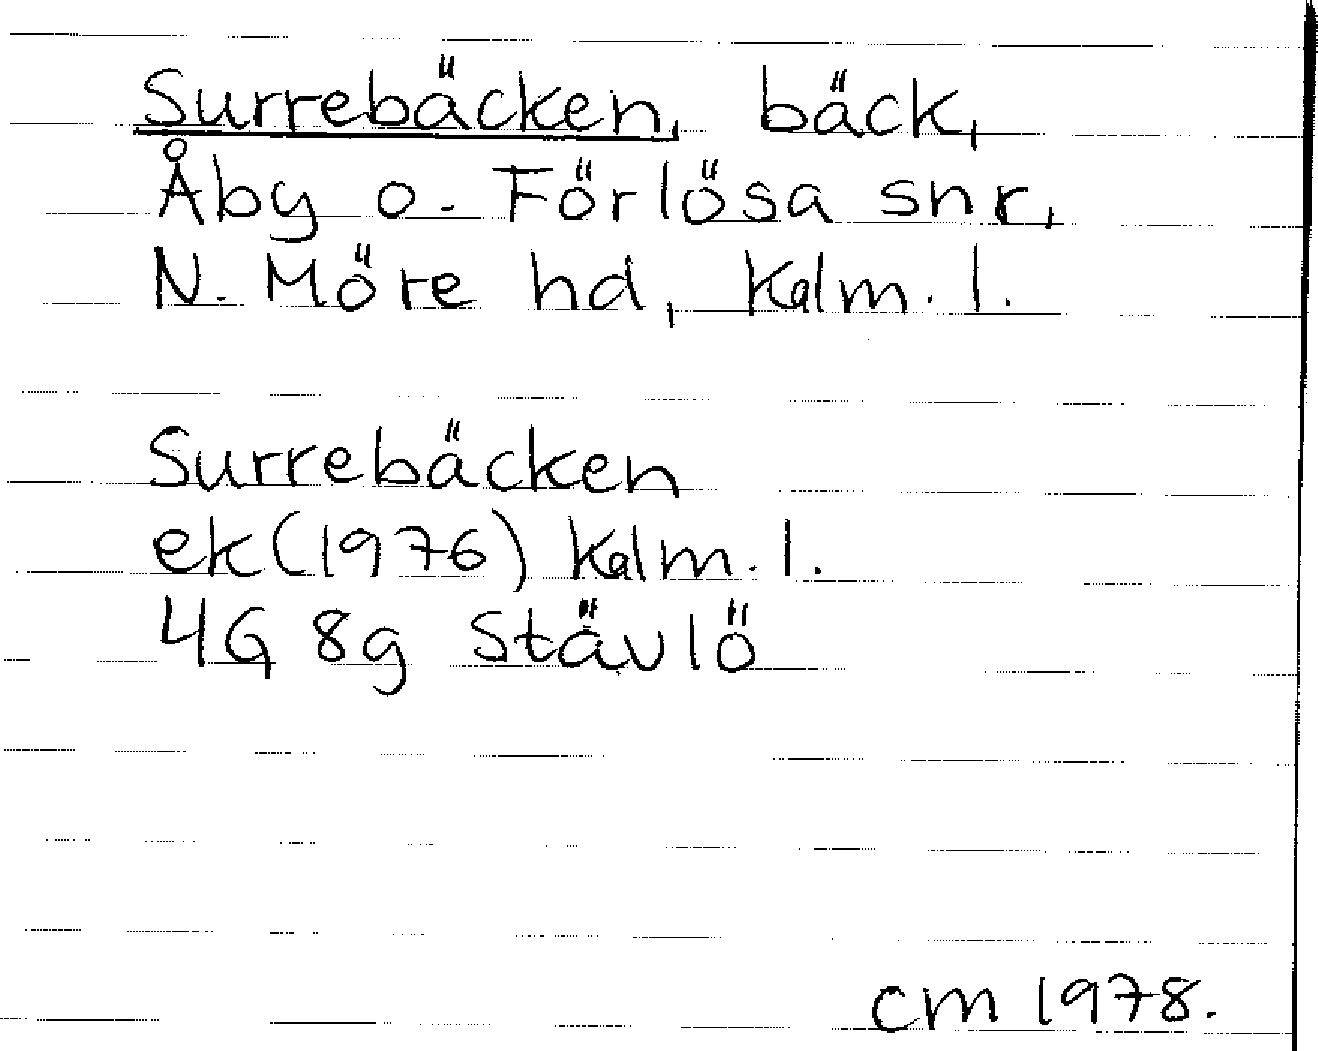 Surrebäcken, bäck,
Åby o. Förlösa snr,
N. Möre hd, Kalm. l.
Surrebäcken
ek (1976) Kalm. l.
4G 8g Stävlö
cm 1978.